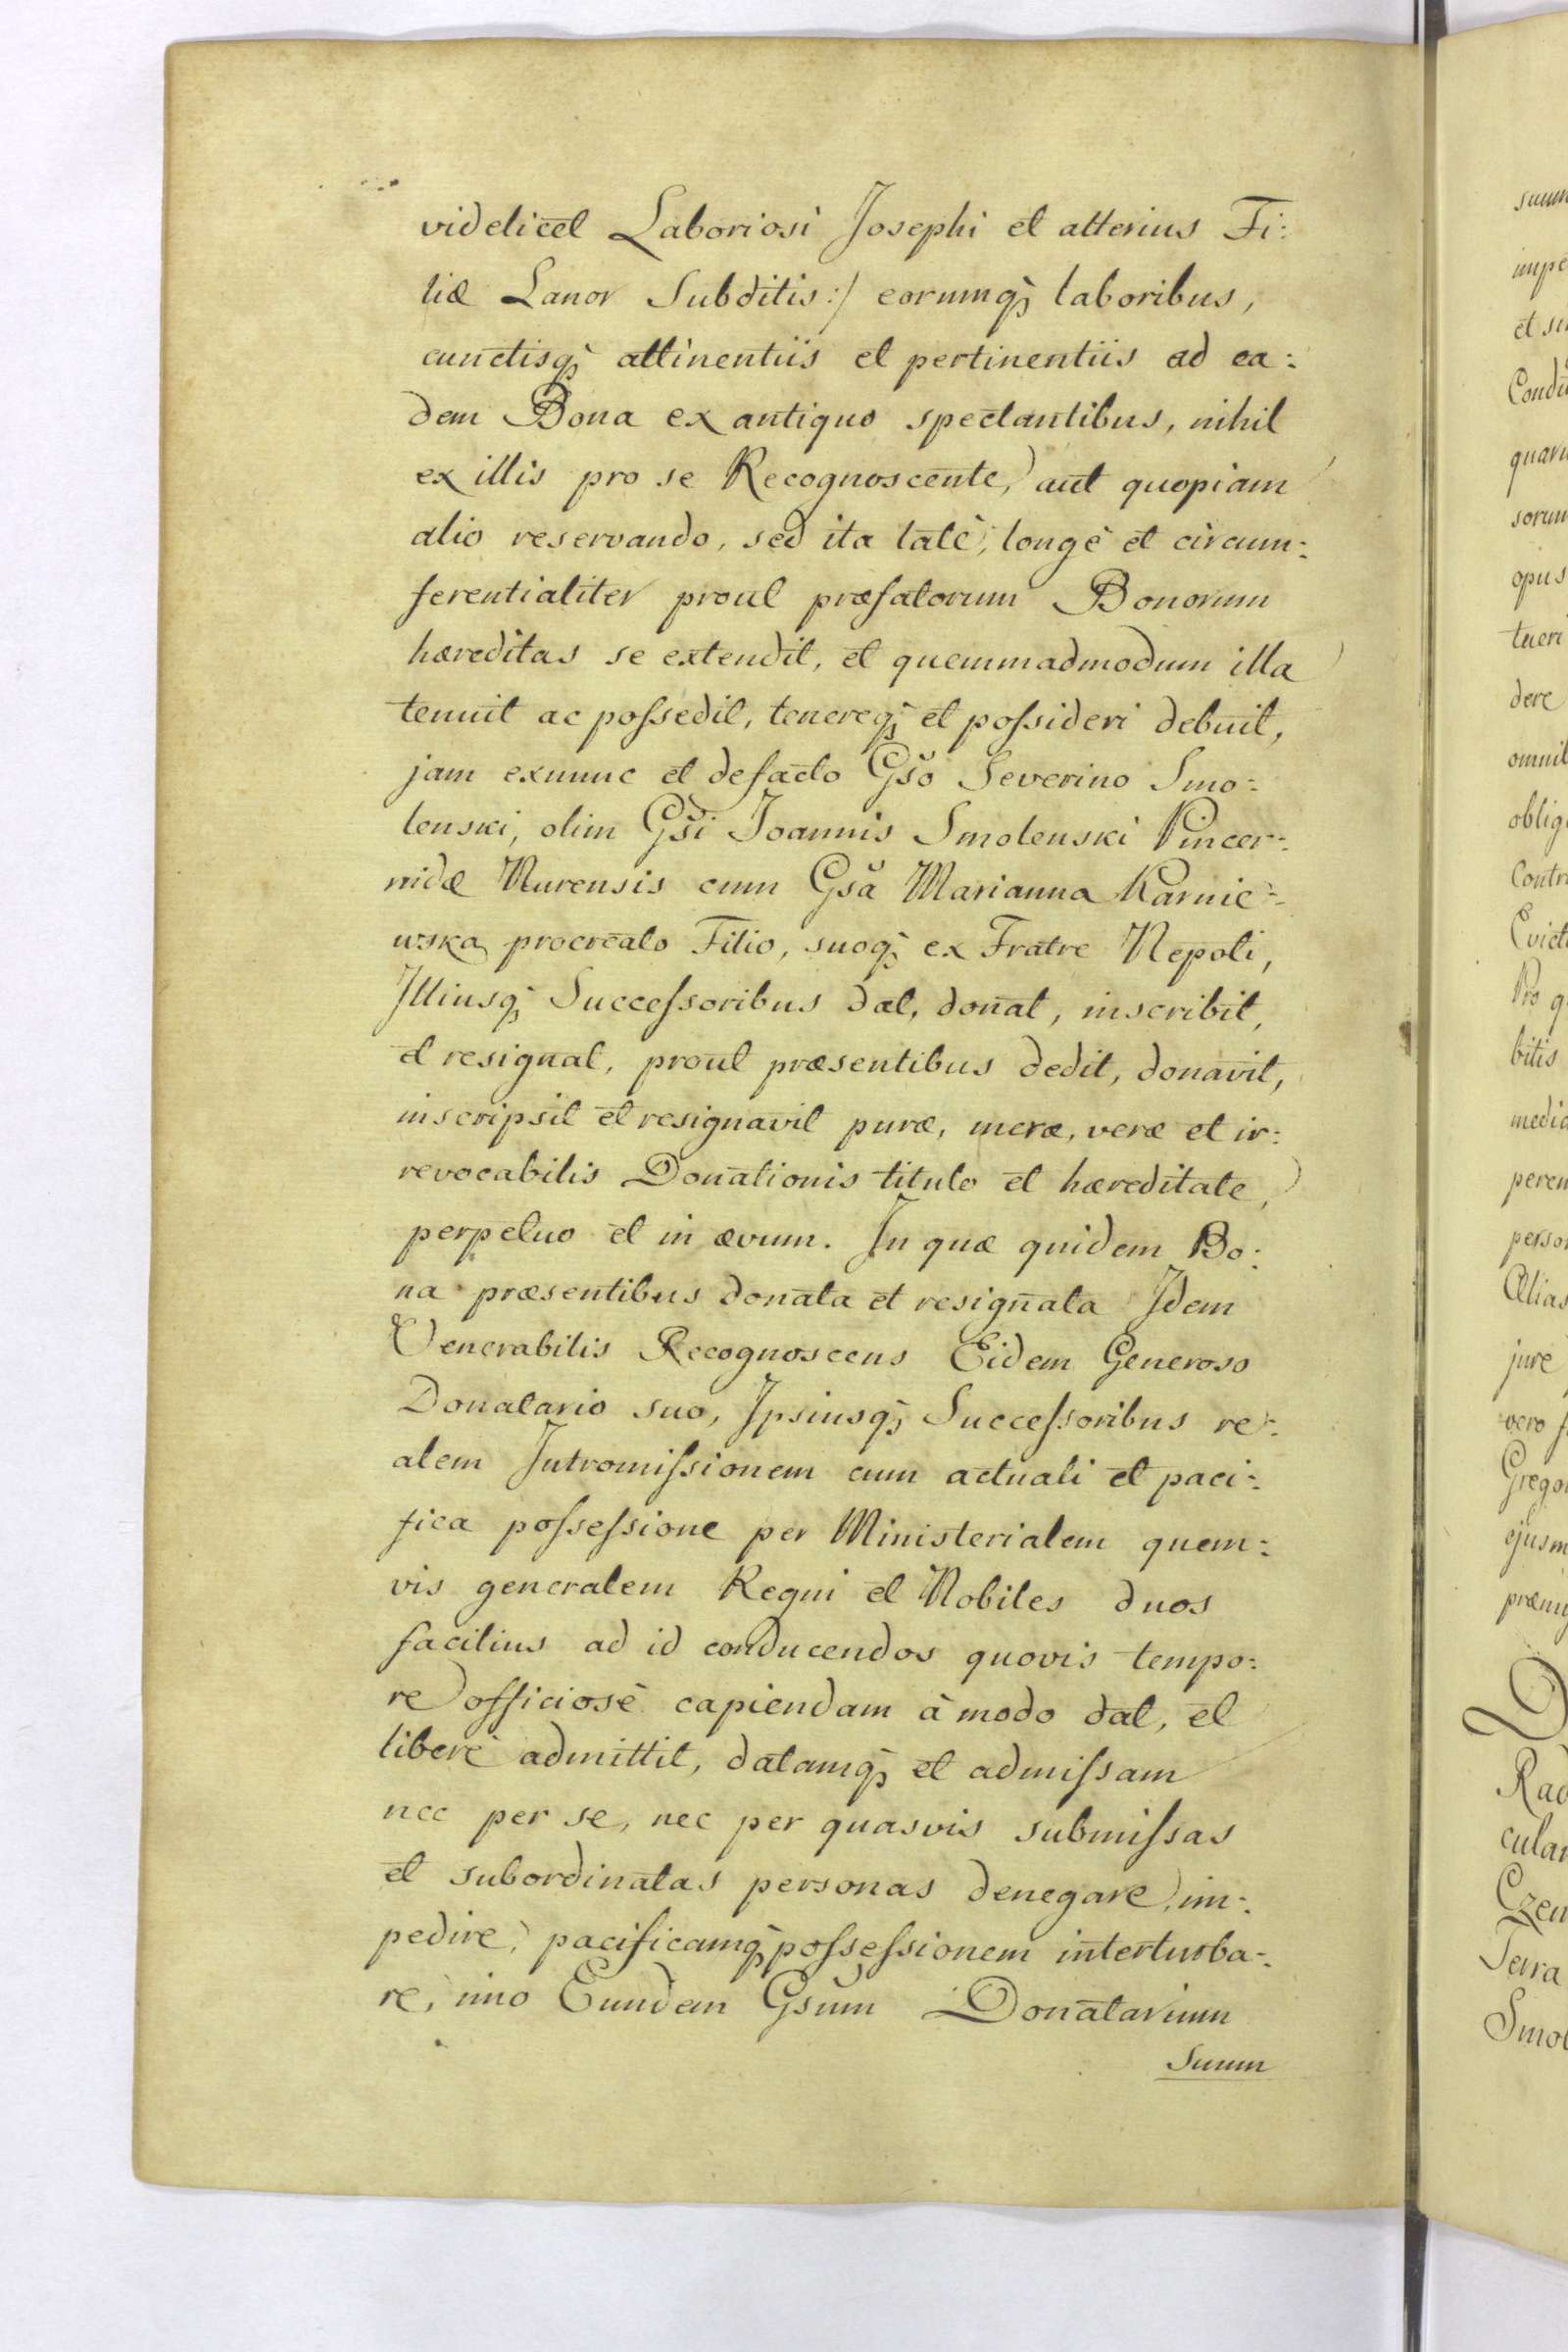 videlicet Laboriosi Josephi et alterius Fi:
liæ Lanor Subditis :/ earumq; laboribus,
cunctisq; attinentiis et pertinentiis ad ea:
dem Bona ex antiquo spectantibus, nihil
ex illis pro se Recognoscente, aut quopiam
alio reservando, sed ita latè, longè et circum:
ferentialiter prout præfatorum Bonorum
hæreditas se extendit, et quemmadmodum illa
tenuit ac possedit, tenereq; et possideri debuit,
jam exnunc et defacto Gšo Severino Smo:
lenski, olim Gši Joannis Smolenski Pincer:
nidæ Nurensis cum Gša Marianna Karnie:
wska procreato Filio, suoq; ex Fratre Nepoti,
Illiusq; Successoribus dat, donat, inscribit,
et resignat, prout præsentibus dedit, donavit,
inscripsit et resignavit puræ, meræ, veræ et ir:
revocabilis Donationis titulo et hæreditate,
perpetuo et in ævum. In quæ quidem Bo:
na præsentibus donata et resignata Idem
Venerabilis Recognoscens Eidem Generoso
Donatario suo, Ipsiusq; Successoribus re:
alem Intromissionem cum actuali et paci:
fica possessione per Ministerialem quem:
vis generalem Regni et Nobiles duos
facilius ad id conducendos quovis tempo:
re officiosè capiendam à modo dat, et
liberè admittit, datamq; et admissam
nec per se, nec per quasvis submissas
et subordinatas personas denegare, im:
pedire, pacificamq; possessionem interturba:
re, imo Eundem Gsum Donatarium
Suum
summ
impe
et su
quavi
sorum
opus
tueri
dere
omnib
oblig
Contr
Evict
Pro q
bitis
media
perem
perso
Alias
jure
vero f
Gregor
ejusm
Rad
cular
Czer
Terra
Smol